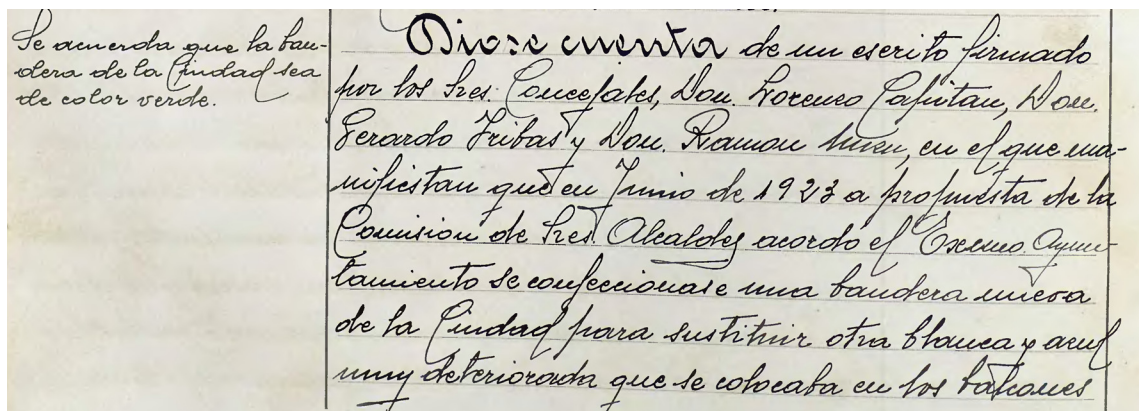 Se acuerda que la ban-
dera de la Ciudad sea
de color verde.
Diose cuenta de un escrito firmado
por los Sres. Concejales, Don. Lorenzo Capitan, Don.
Gerardo Fribas y Don. Ramon in en el que ma-
nifiestan que en Junio de 1923 a propuesta de la
Comision de Sres. Alcaldes acordó el Excmo. Ayun-
tamiento se confeccionase una bandera nueva
de la Ciudad para sustituir otra blanca y azul
muy deteriorada que se colocaba en los balcones